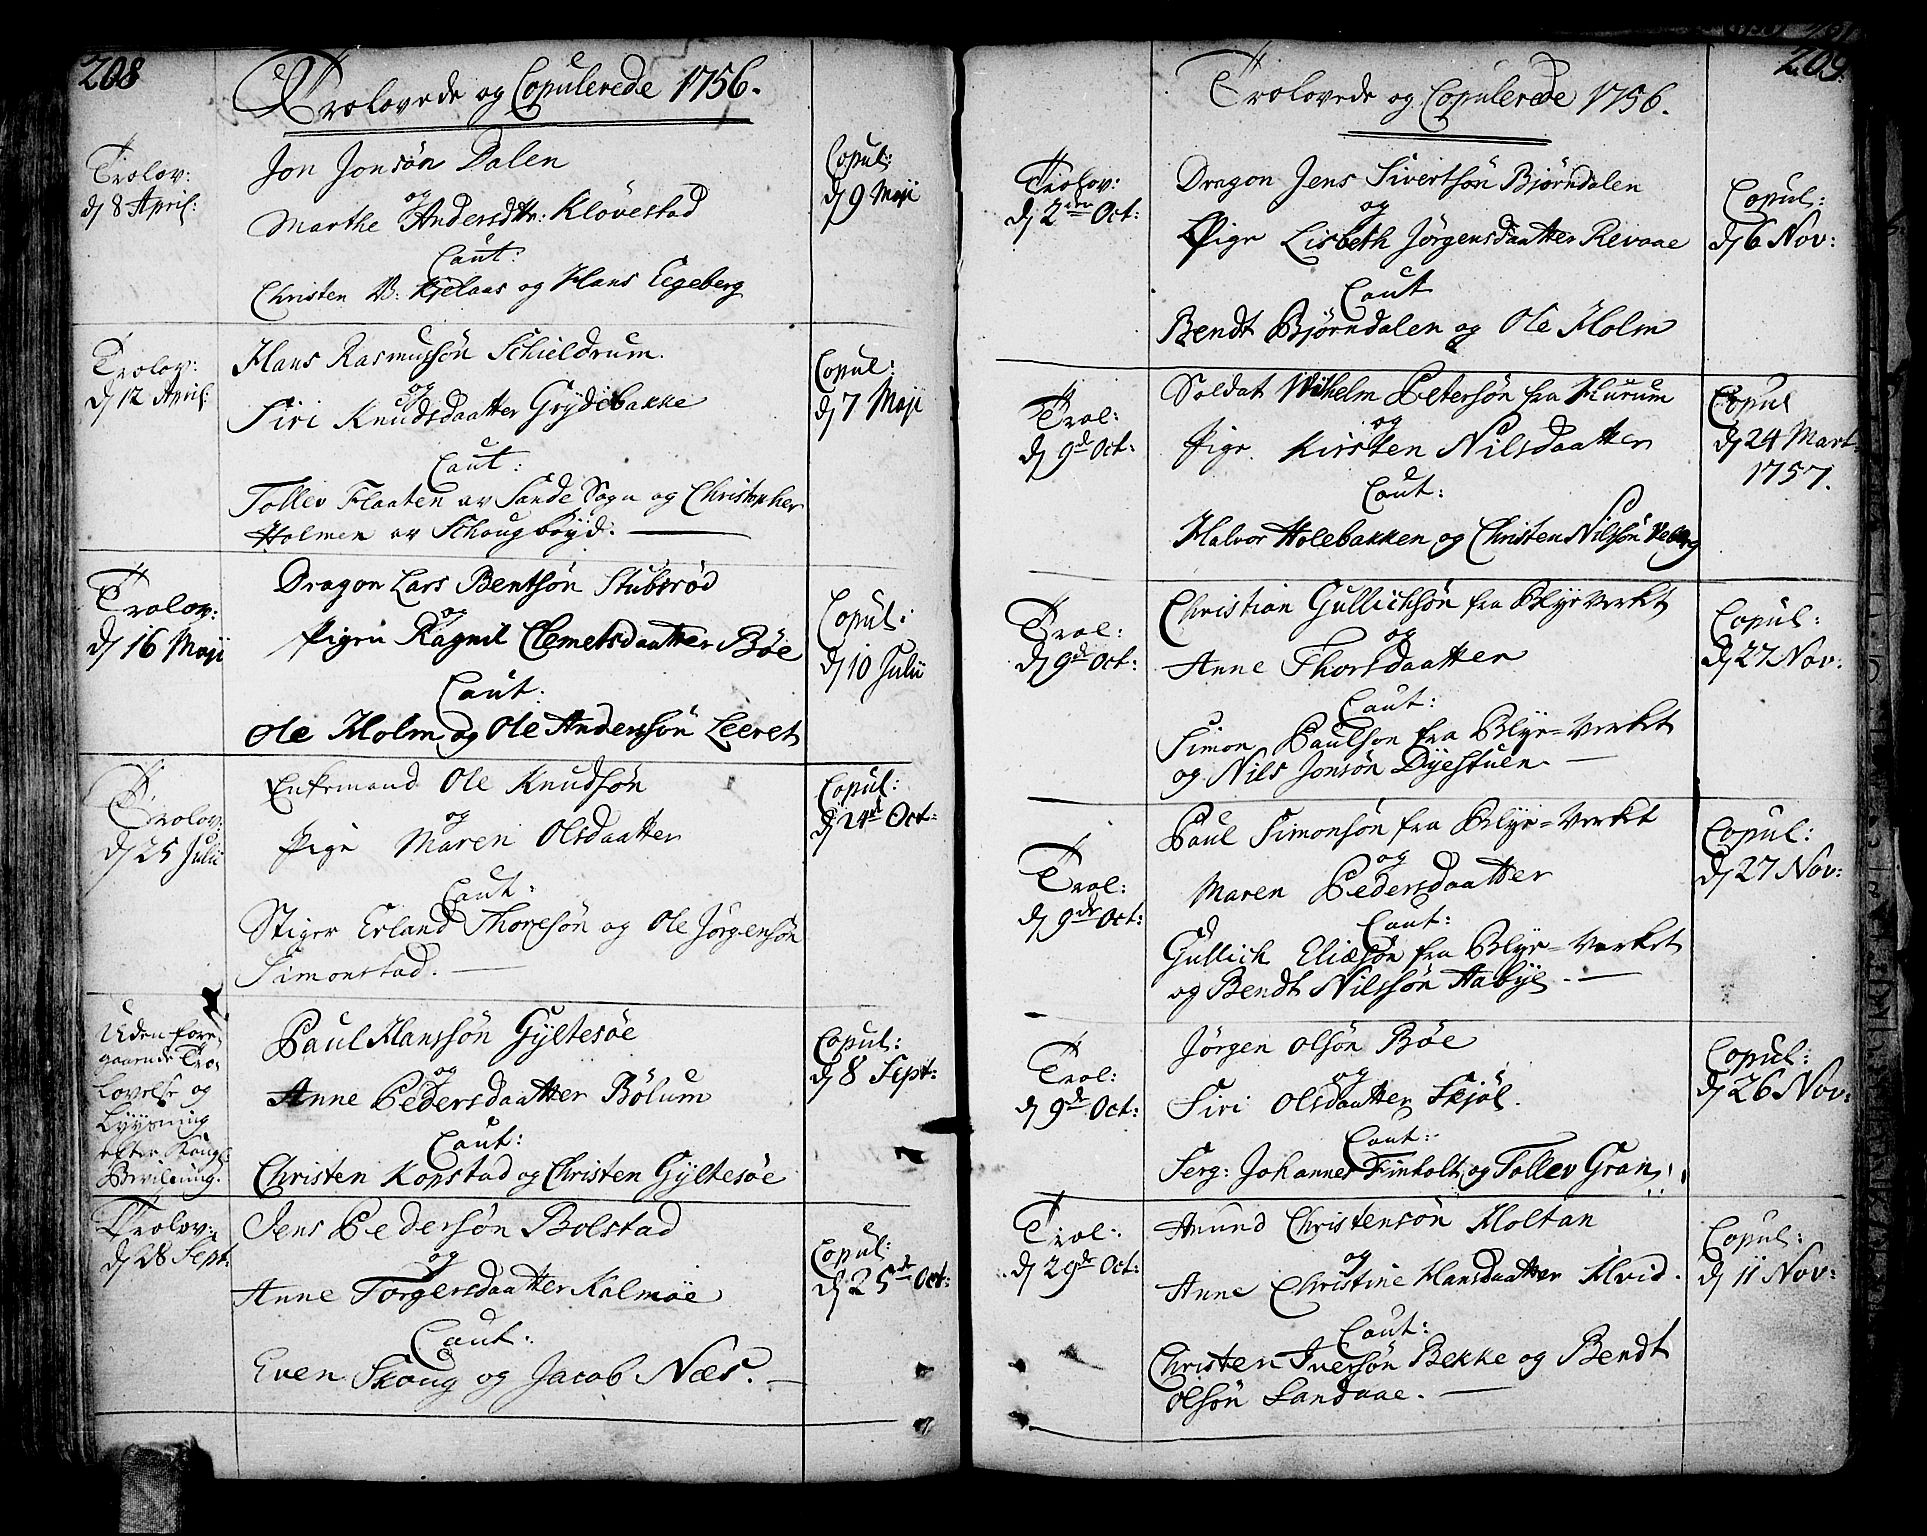 208
Trolovede og Copulerede 1756.
Trolov:
d 8 April:
Jon Jonsön Dalen
og
Marthe Andersdtr: Klövestad
Caut:
Christen B: Kjelaas og Hans Eegeberg
Copul:
d 9 Maji
Trolov:
d 12 April:
Hans Rasmussön Schieldrum.
og
Siri Knudsdaatter Grydebakke
Caut:
Tollev Flaaten av Sande Sogn og Christopher
Holmen av Schougbøyd.
Copul:
d 7 Maji
Trolov:
d 16 Maji
Dragon Lars Bentsön Stubsröd
og
Pigen Ragnil Clemetsdaatter Böe
Caut:
Ole Holm og Ole Anderssön Leeret
Copul:
d 10 Julii
Trolov:
d 25 Julii
Enkemand Ole Knudsön
og
Pige Maren Olsdaatter
Caut:
Stiger Erland Thoresön og Ole Jörgensön
Simonstad.
Copul:
d 24d Oct:
Uden fore
gaaende Tro-
lovelse og
Lyysning
efter Kongl:
Bevilning.
Paul Hanssön Gyltesöe
og
Anne Pedersdaatter Bölum
Caut:
Christen Kopstad og Christen Gyltesöe
Copul:
d 8 Sept:
Trolov:
d 28 Sept:
Jens Pedersön Bolstad
og
Anne Torgersdaatter Kalmöe
Caut:
Even Skoug og Jacob Næs.
Copul:
d 25de Oct:
209
Trolovede og Copulerede 1756.
Trolov:
d 2den Oct:
Dragon Jens Sivertsön Björndalen
og
Pige Lisbeth Jörgensdaatter Revaae
Caut
Bendt Björndalen og Ole Holm
Copul:
d 6 Nov:
Trol:
d 9d Oct:
Soldat Wilhelm Petersön fra Hurum
og
Pige Kirsten Nilsdaatter
Caut:
Halvor Holebakken og Christen Nilsön Veberg
Copul
d 24 Mart
1757.
Trol:
d 9d Oct:
Christian Gullichsön fra Blye Verket
og
Anne Thorsdaatter
Caut:
Simon Paulson fra Blye-Verket
og Nils Jonsön Dyestuen.
Copul:
d 27 Nov:
Trol:
d 9de Oct:
Paul Simonsön fra Blye-Verket
og
Maren Pedersdaatter
Caut:
Gullich Eliæsön fra Blye-Verket
og Bendt Nilssön Aabye.
Copul:
d 27 Nov:
Trol:
d 9d Oct:
Jörgen Olsön Böe
og
Siri Olsdaatter Skjöl.
Caut:
Serg: Johannes Finholt og Tollev Gran
Copul:
d 26 Nov:
Trol:
d 29de Oct:
Amund Christensön Holtan
og
Anne Christine Hansdaatter Hvid.
Caut:
Christen Iversön Bekke og Bendt
Olsön Sandaae.
Copul:
d 11 Nov: